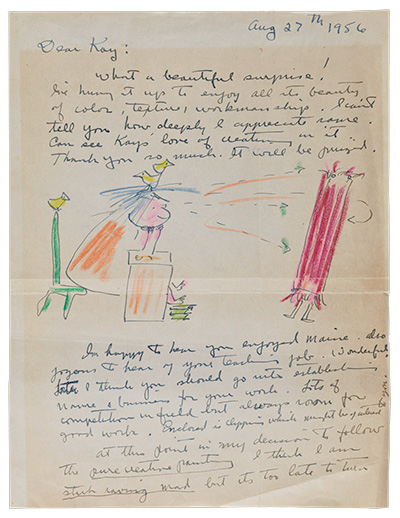 Aug 27th 1956
Dear Kay:
What a beautiful surprise!
I've hung it up to enjoy all its beauty
of color, texture, workmanship. I can't
tell you how deeply I appreciate same.
Can see Kays love of creating in it.
Thank you so much. It will be prized.
I'm happy to hear you enjoyed Maine. also
joyous to hear of your teaching job. Wonderful.
I think you should go into establishing
name & business for your work. Lots of
competition in field but always room for
good work. Enclosed is clipping which might be of interest to you.
at this point in my decision to follow
the pure creative painting I think I am
stark raving mad but its too late to turn